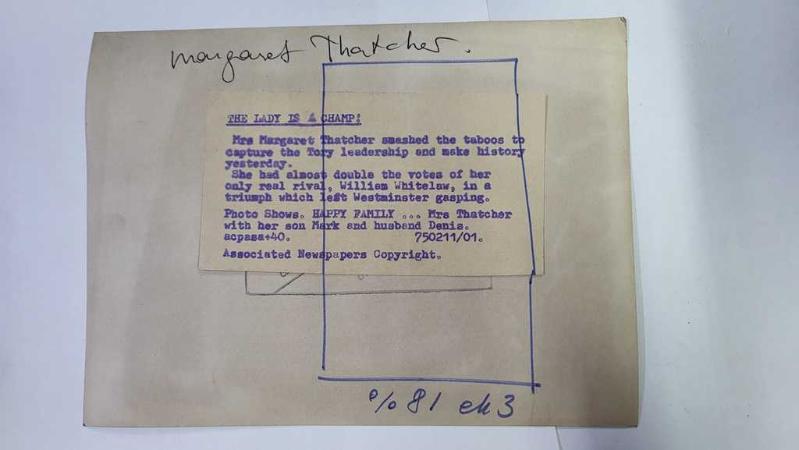 Margaret Thatcher.
THE LADY IS A CHAMP!
Mrs Margaret Thatcher smashed the taboos to
capture the Tory leadership and make history
yesterday.
She had almost double the votes of her
only real rival, William Whitelaw, in a
triumph which left Westminster gasping.
Photo Shows. HAPPY FAMILY ... Mrs Thatcher
with her son Mark and husband Denis.
acpasa+40. 750211/01.
Associated Newspapers Copyright.
% 81 ek3